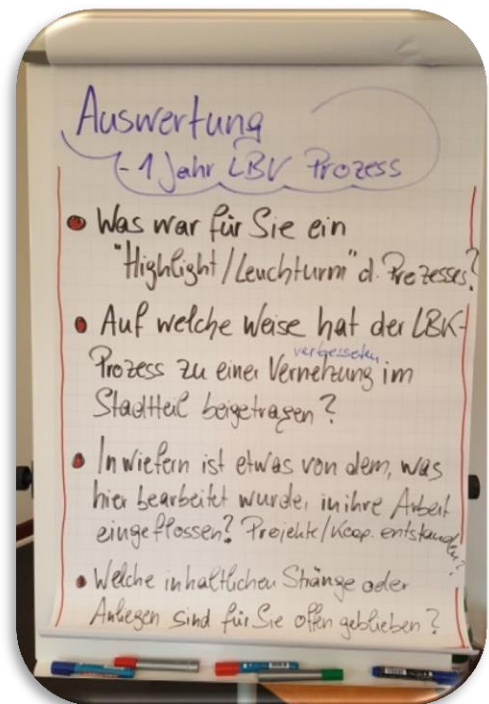 Auswertung
- 1 Jahr LBV Prozess
Was war für Sie ein
"Highlight/Leuchturm" d. Prozesses?
Auf welche Weise hat der LBK-
Prozess zu einer verbesserten Vernetzung im
Stadtteil beigetragen?
Inwiefern ist etwas von dem, was
hier bearbeitet wurde, in ihre Arbeit
eingeflossen? Projekte/Koop. entstanden?
Welche inhaltlichen Stränge oder
Anliegen sind für Sie offen geblieben?